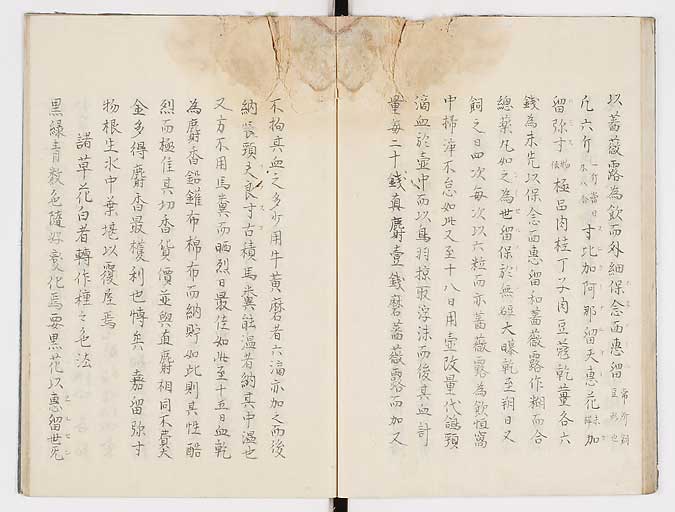 以薔薇露為飲而外細保念面惠留
凢六斤 一斤當日 寸比加阿那留天惠花 加
留弥寸 極品肉桂丁子肉豆蔻乾薑各六
錢為末先以保念面惠留和薔薇露作糊而合
總藥凢如之為世留保於無 大曝乾至翔日又
飼之日四次每次以六粒而亦薔薇露為飲恒窩
中掃淨不怠如此又至十八日用壺改量代鴿頸
滴血於壺中而以鳥羽掠取浮沫而後其血計
量每二十錢真麝壹錢磨薔薇露而加又
不拘其血之多少用牛黃磨者六滴亦加之而後
納 頸 良寸古積馬糞能溫者納其中溫也
又方不用馬糞而晒烈日最佳如此至十五日血乾
為麝香鉛錐布棉布而納貯如此則其性酷
烈而極佳其切香貨價並與真麝相同不費大
金多得麝香最 利也 矣 嘉留弥寸
物根生水中葉堪以覆屋焉
諸草花白者轉作種之色法
黑綠青数色隨好変化焉要黑花以惠留世